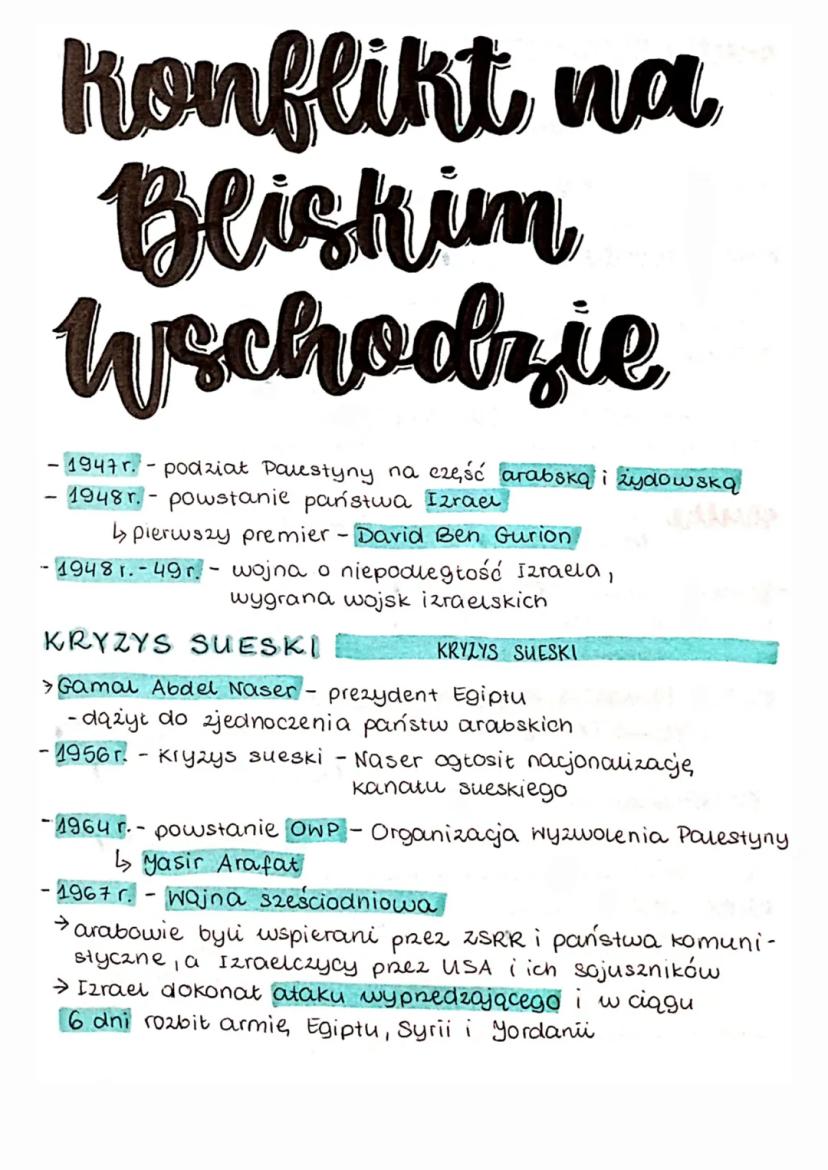 Konflikt na
Bliskim
Wschodzie
- 1947r. - podział Palestyny na część arabską i żydowską
- 1948r. - powstanie państwa Izrael
↳ pierwszy premier - David Ben Gurion
- 1948r. - 49r. - wojna o niepodległość Izraela,
wygrana wojsk izraelskich
KRYZYS SUESKI KRYZYS SUESKI
> Gamal Abdel Naser - prezydent Egiptu
- dążył do zjednoczenia państw arabskich
- 1956r. - kryzys sueski - Naser ogłosił nacjonalizację
kanału sueskiego
- 1964r. - powstanie OWP - Organizacja Wyzwolenia Palestyny
↳ Yasir Arafat
- 1967r. - Wojna sześciodniowa
→ arabowie byli wspierani przez ZSRR i państwa komuni-
styczne, a Izraelczycy przez USA i ich sojuszników
→ Izrael dokonał ataku wyprzedzającego i w ciągu
6 dni rozbił armię Egiptu, Syrii i Yordanii